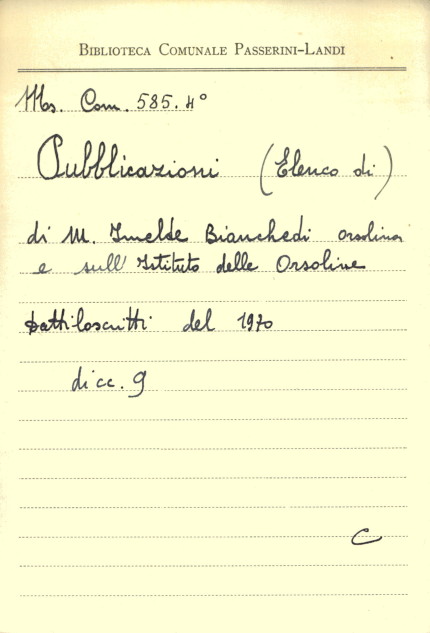 BIBLIOTECA COMUNALE PASSERINI-LANDI
Ms. Com. 585. 4°
Pubblicazioni (Elenco di)
di M. Imelde Bianchedi orsolina
e sull' Istituto delle Orsoline
Dattiloscritti del 1970
di cc. 9
C